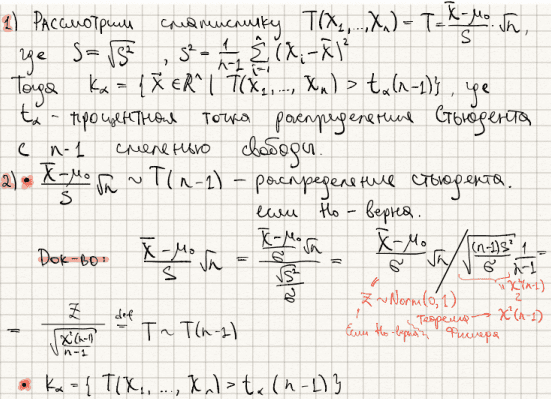 1) Рассмотрим статистику T(X₁,...,Xₙ) = T = (X̄-μ₀)/S · √n,
где S = √S², S² = 1/(n-1) ∑ᵢ₌₁ⁿ (Xᵢ-X̄)²
Тогда Kα = { X⃗ ∈ Rⁿ | T(X₁, ..., Xₙ) > tα(n-1)}, где
tα - процентная точка распределения Стьюдента
с n-1 степенью свободы.
2) • (X̄-μ₀)/S √n ~ T(n-1) - распределение стьюдента.
если H₀ - верна.
Док-во: (X̄-μ₀)/S √n = ((X̄-μ₀)/σ √n)/(√S²/σ) = (X̄-μ₀)/σ √n / √((n-1)S²/σ · 1/(n-1)) =
Z ~ Norm(0,1)
Если H₀-верна
Теорема Фишера
χ²(n-1)
= Z/√(χ²(n-1)/(n-1)) def= T ~ T(n-1)
• Kα = { T(X₁, ..., Xₙ) > tα (n-1)}